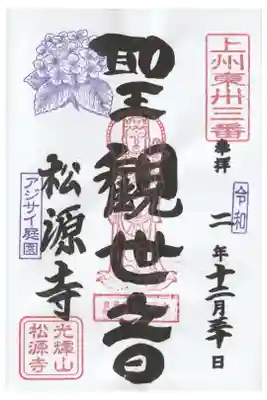 上州東三十三番
奉拝
令和
二年十二月三十日
聖観世音
松源寺
アジサイ庭園
光輝山
松源寺